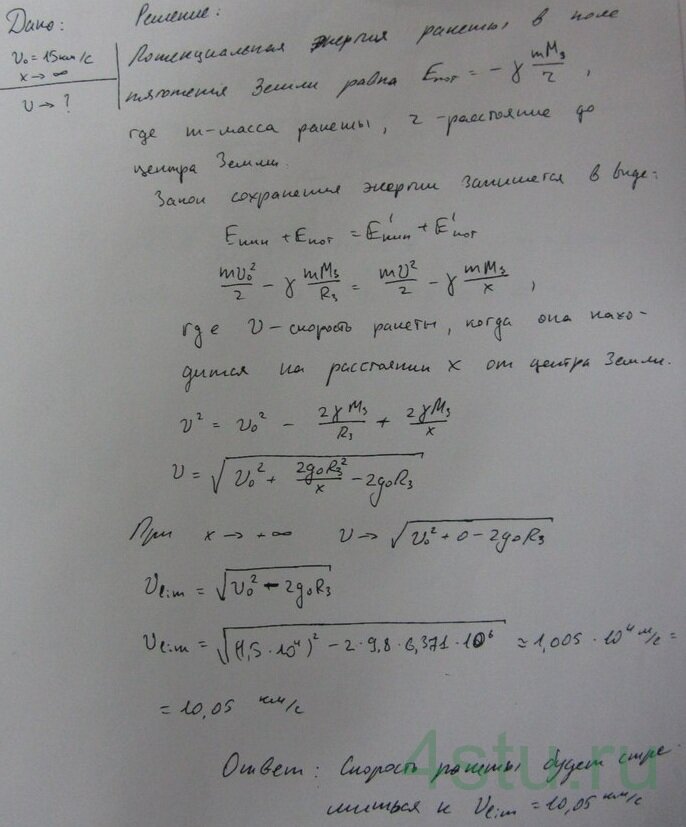 Дано:
υ₀ = 15 км/с
x → ∞
υ → ?
Решение:
Потенциальная энергия ракеты в поле
тяготения Земли равна Eпот = −γ mMз/r ,
где m-масса ракеты, r-расстояние до
центра Земли.
Закон сохранения энергии запишется в виде:
Eкин + Eпот = E'кин + E'пот
mυ₀²/2 − γ mMз/Rз = mυ²/2 − γ mMз/x ,
где υ-скорость ракеты, когда она нахо-
дится на расстоянии x от центра Земли.
υ² = υ₀² − 2γMз/Rз + 2γMз/x
υ = √(υ₀² + 2g₀Rз²/x − 2g₀Rз)
При x → +∞ υ → √(υ₀² + 0 − 2g₀Rз)
υlim = √(υ₀² − 2g₀Rз)
υlim = √((1,5·10⁴)² − 2·9,8·6,371·10⁶) ≈ 1,005·10⁴ м/с =
= 10,05 км/с
Ответ: Скорость ракеты будет стре-
миться к υlim = 10,05 км/с
4stu.ru